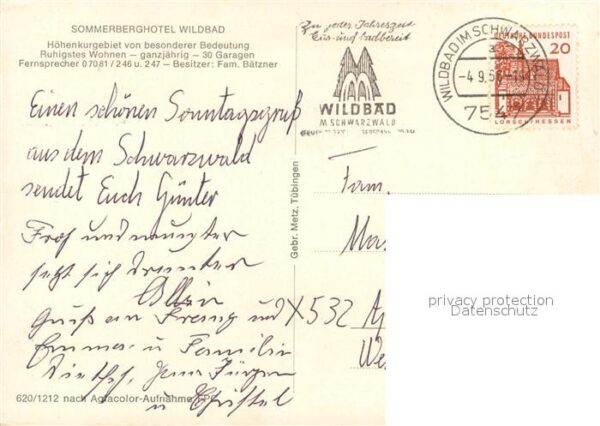 SOMMERBERGHOTEL WILDBAD
Höhenkurgebiet von besonderer Bedeutung
Ruhigstes Wohnen — ganzjährig — 30 Garagen
Fernsprecher 07081 / 246 u. 247 — Besitzer: Fam. Bätzner
Zu jeder Jahreszeit
Eis- und badbereit
WILDBAD
IM SCHWARZWALD
WILDBAD IM SCHWARZWALD
-4.9.
7547
DEUTSCHE BUNDESPOST
20
LORSCH/HESSEN
Einen schönen Sonntagsgruß
aus dem Schwarzwald
sendet Euch Günter
Froh und munter
setzt sich drunter
Gruß an Franz und
Emma u Familie
Jürgen
u Christel
Gebr. Metz, Tübingen
Fam.
X532
620/1212 nach Agfacolor-Aufnahme
privacy protection
Datenschutz